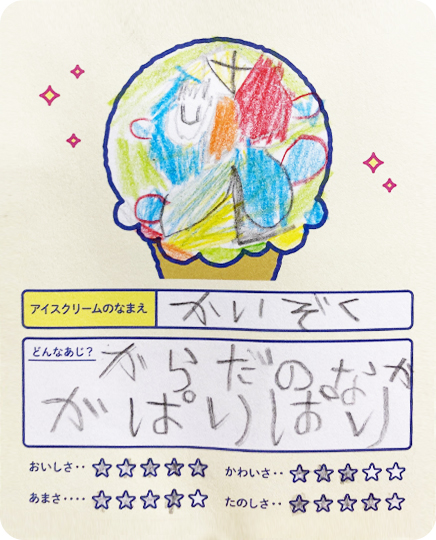 アイスクリームのなまえ
かいぞく
どんなあじ?
からだのなか
がぱりぱり
おいしさ‥ ★★★★★
かわいさ‥ ★★★☆☆
あまさ‥‥ ★★★★☆
たのしさ‥ ★★★★☆